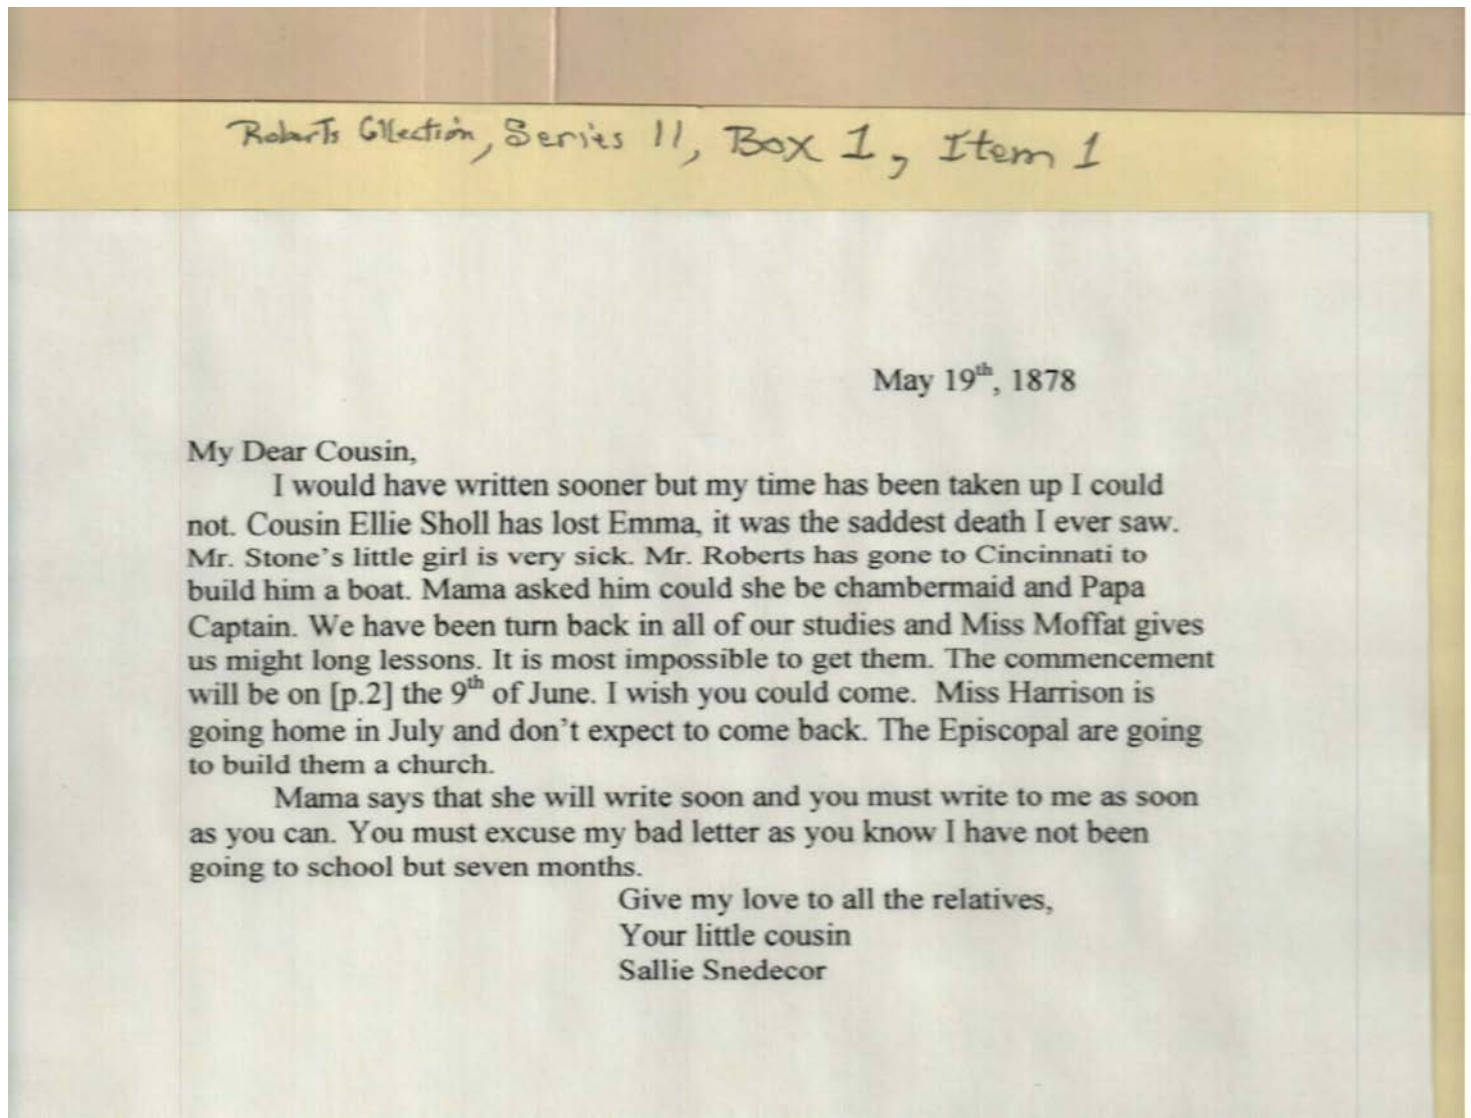 Roberts Collection, Series 11, Box 1, Item 1
May 19th, 1878
My Dear Cousin,
I would have written sooner but my time has been taken up I could
not. Cousin Ellie Sholl has lost Emma, it was the saddest death I ever saw.
Mr. Stone's little girl is very sick. Mr. Roberts has gone to Cincinnati to
build him a boat. Mama asked him could she be chambermaid and Papa
Captain. We have been turn back in all of our studies and Miss Moffat gives
us might long lessons. It is most impossible to get them. The commencement
will be on [p.2] the 9th of June. I wish you could come. Miss Harrison is
going home in July and don't expect to come back. The Episcopal are going
to build them a church.
Mama says that she will write soon and you must write to me as soon
as you can. You must excuse my bad letter as you know I have not been
going to school but seven months.
Give my love to all the relatives,
Your little cousin
Sallie Snedecor